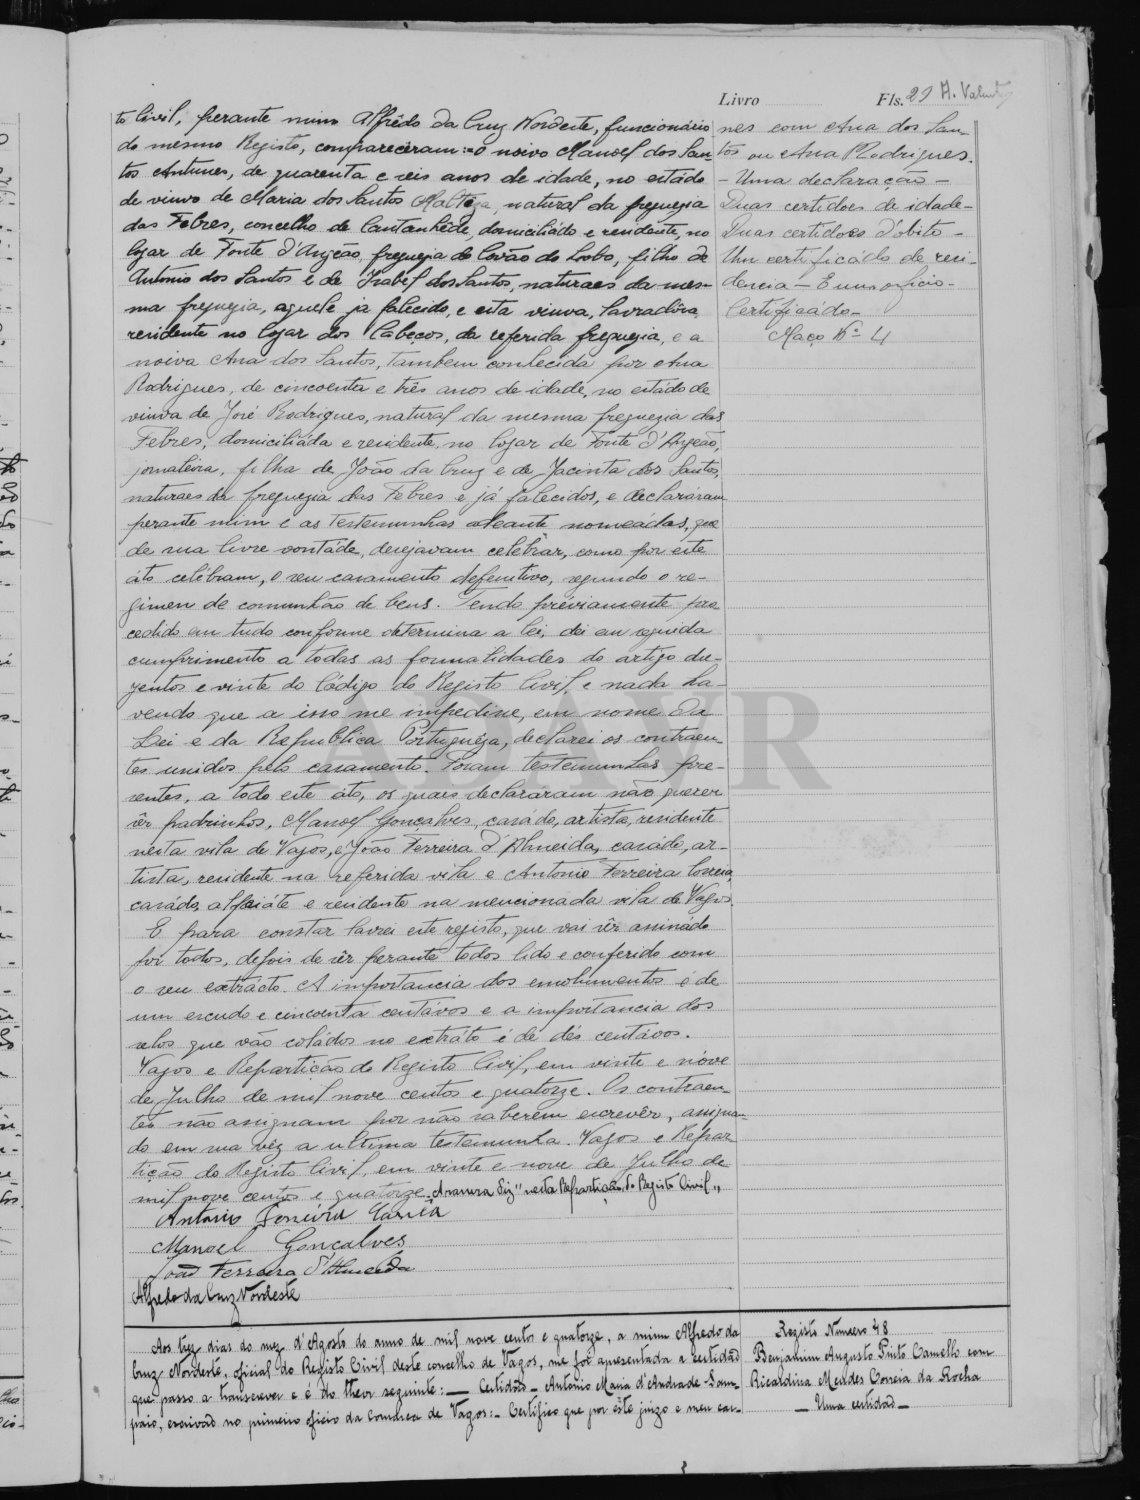 Livro Fls. 29 A. Valente
to Civil, perante mim Alfrêdo da Cruz Nordeste, funcionário
do mesmo Registo, compareceram:=o noivo Manoel dos San
tos Antunes, de quarenta e seis anos de idade, no estádo
de viuvo de Maria dos Santos Malteza, natural da freguezia
das Febres, concelho de Cantanhêde, domiciliádo e residente, no
logar de Fonte d'Angeão, freguezia de Covão do Lobo, filho de
Antonio dos Santos e de Izabel dos Santos, naturaes da mes-
ma freguezia, aquele já falecido, e esta viuva, lavradôra
residente no logar dos Cabeços, da referida freguezia, e a
noiva Ana dos Santos, tambem conhecida por Ana
Rodrigues, de cincoenta e três anos de idade, no estádo de
viuva de José Rodrigues, natural da mesma freguezia das
Febres, domiciliáda e residente, no logar de Fonte d'Angeão,
jornaleira, filha de João da Cruz e de Jacinta dos Santos,
naturaes da freguezia das Febres e já falecidos, e declaráram
perante mim e as testemunhas adeante nomeádas, que
de sua livre vontáde, desejavam celebrar, como por este
áto celébram, o seu casamento defenitivo, segundo o re-
gimen de comunhão de bens. Tendo préviamente pro
cedido em tudo conforme determina a lei, dei em seguida
cumprimento a todas as formalidades do artigo du-
zentos e vinte do Código do Registo Civil, e nada ha-
vendo que a isso me impedisse, em nome da
Lei e da Republica Portuguêza, declarei os contraen-
tes unidos pelo casamento. Foram testemunhas pre-
sentes, a todo este áto, os quais declaráram não querer
sêr padrinhos, Manoel Gonçalves, casádo, artista, residente
nesta vila de Vagos, e João Ferreira d'Almeida, casádo, ar-
tista, residente na referida vila e Antonio Ferreira Correia,
casádo, alfaiáte e residente na mencionada vila de Vagos.
E para constar lavrei este registo, que vai sêr assinádo
por todos, depois de sêr perante todos lido e conferido com
o seu extrácto. A importancia dos emolumentos é de
um escudo e cincoenta centávos e a importancia dos
selos que vão coládos no extráto é de dés centávos.
Vagos e Repartição do Registo Civil, em vinte e nóve
de Julho de mil nove centos e quatorze. Os contraen-
tes não assignam por não saberem escrevêr, assignan-
do em sua vêz a ultima testemunha. Vagos e Repar
tição do Registo Civil, em vinte e nove de Julho de
mil nove centos e quatorze. A rasura diz "nesta Repartição do Registo Civil"
Antonio Ferreira Correia
Manoel Gonçalves
João Ferreira d'Almeida
Alfredo da Cruz Nordeste
nes com Ana dos San-
tos ou Ana Rodrigues.
- Uma declaração -
Duas certidões de idade -
Duas certidões d'óbito -
Um certificádo de resi-
dencia - E um oficio -
Certificádo -
Maço Nº 4
Aos trez dias do mez d'Agosto do anno de mil nove centos e quatorze, a mim Alfredo da
Cruz Nordeste, oficial do Registo Civil deste concelho de Vagos, me foi apresentada a certidão
que passo a transcrever e é do theor seguinte: - Certidão - Antonio Maria d'Andrade Sam-
paio, escrivão no primeiro oficio da Comarca de Vagos: - Certifico que por êste juizo e meu car-
Registo Numero 48
Benjamim Augusto Pinto Camello com
Ricardina Mendes Correia da Rocha
- Uma certidão -
ADAVR